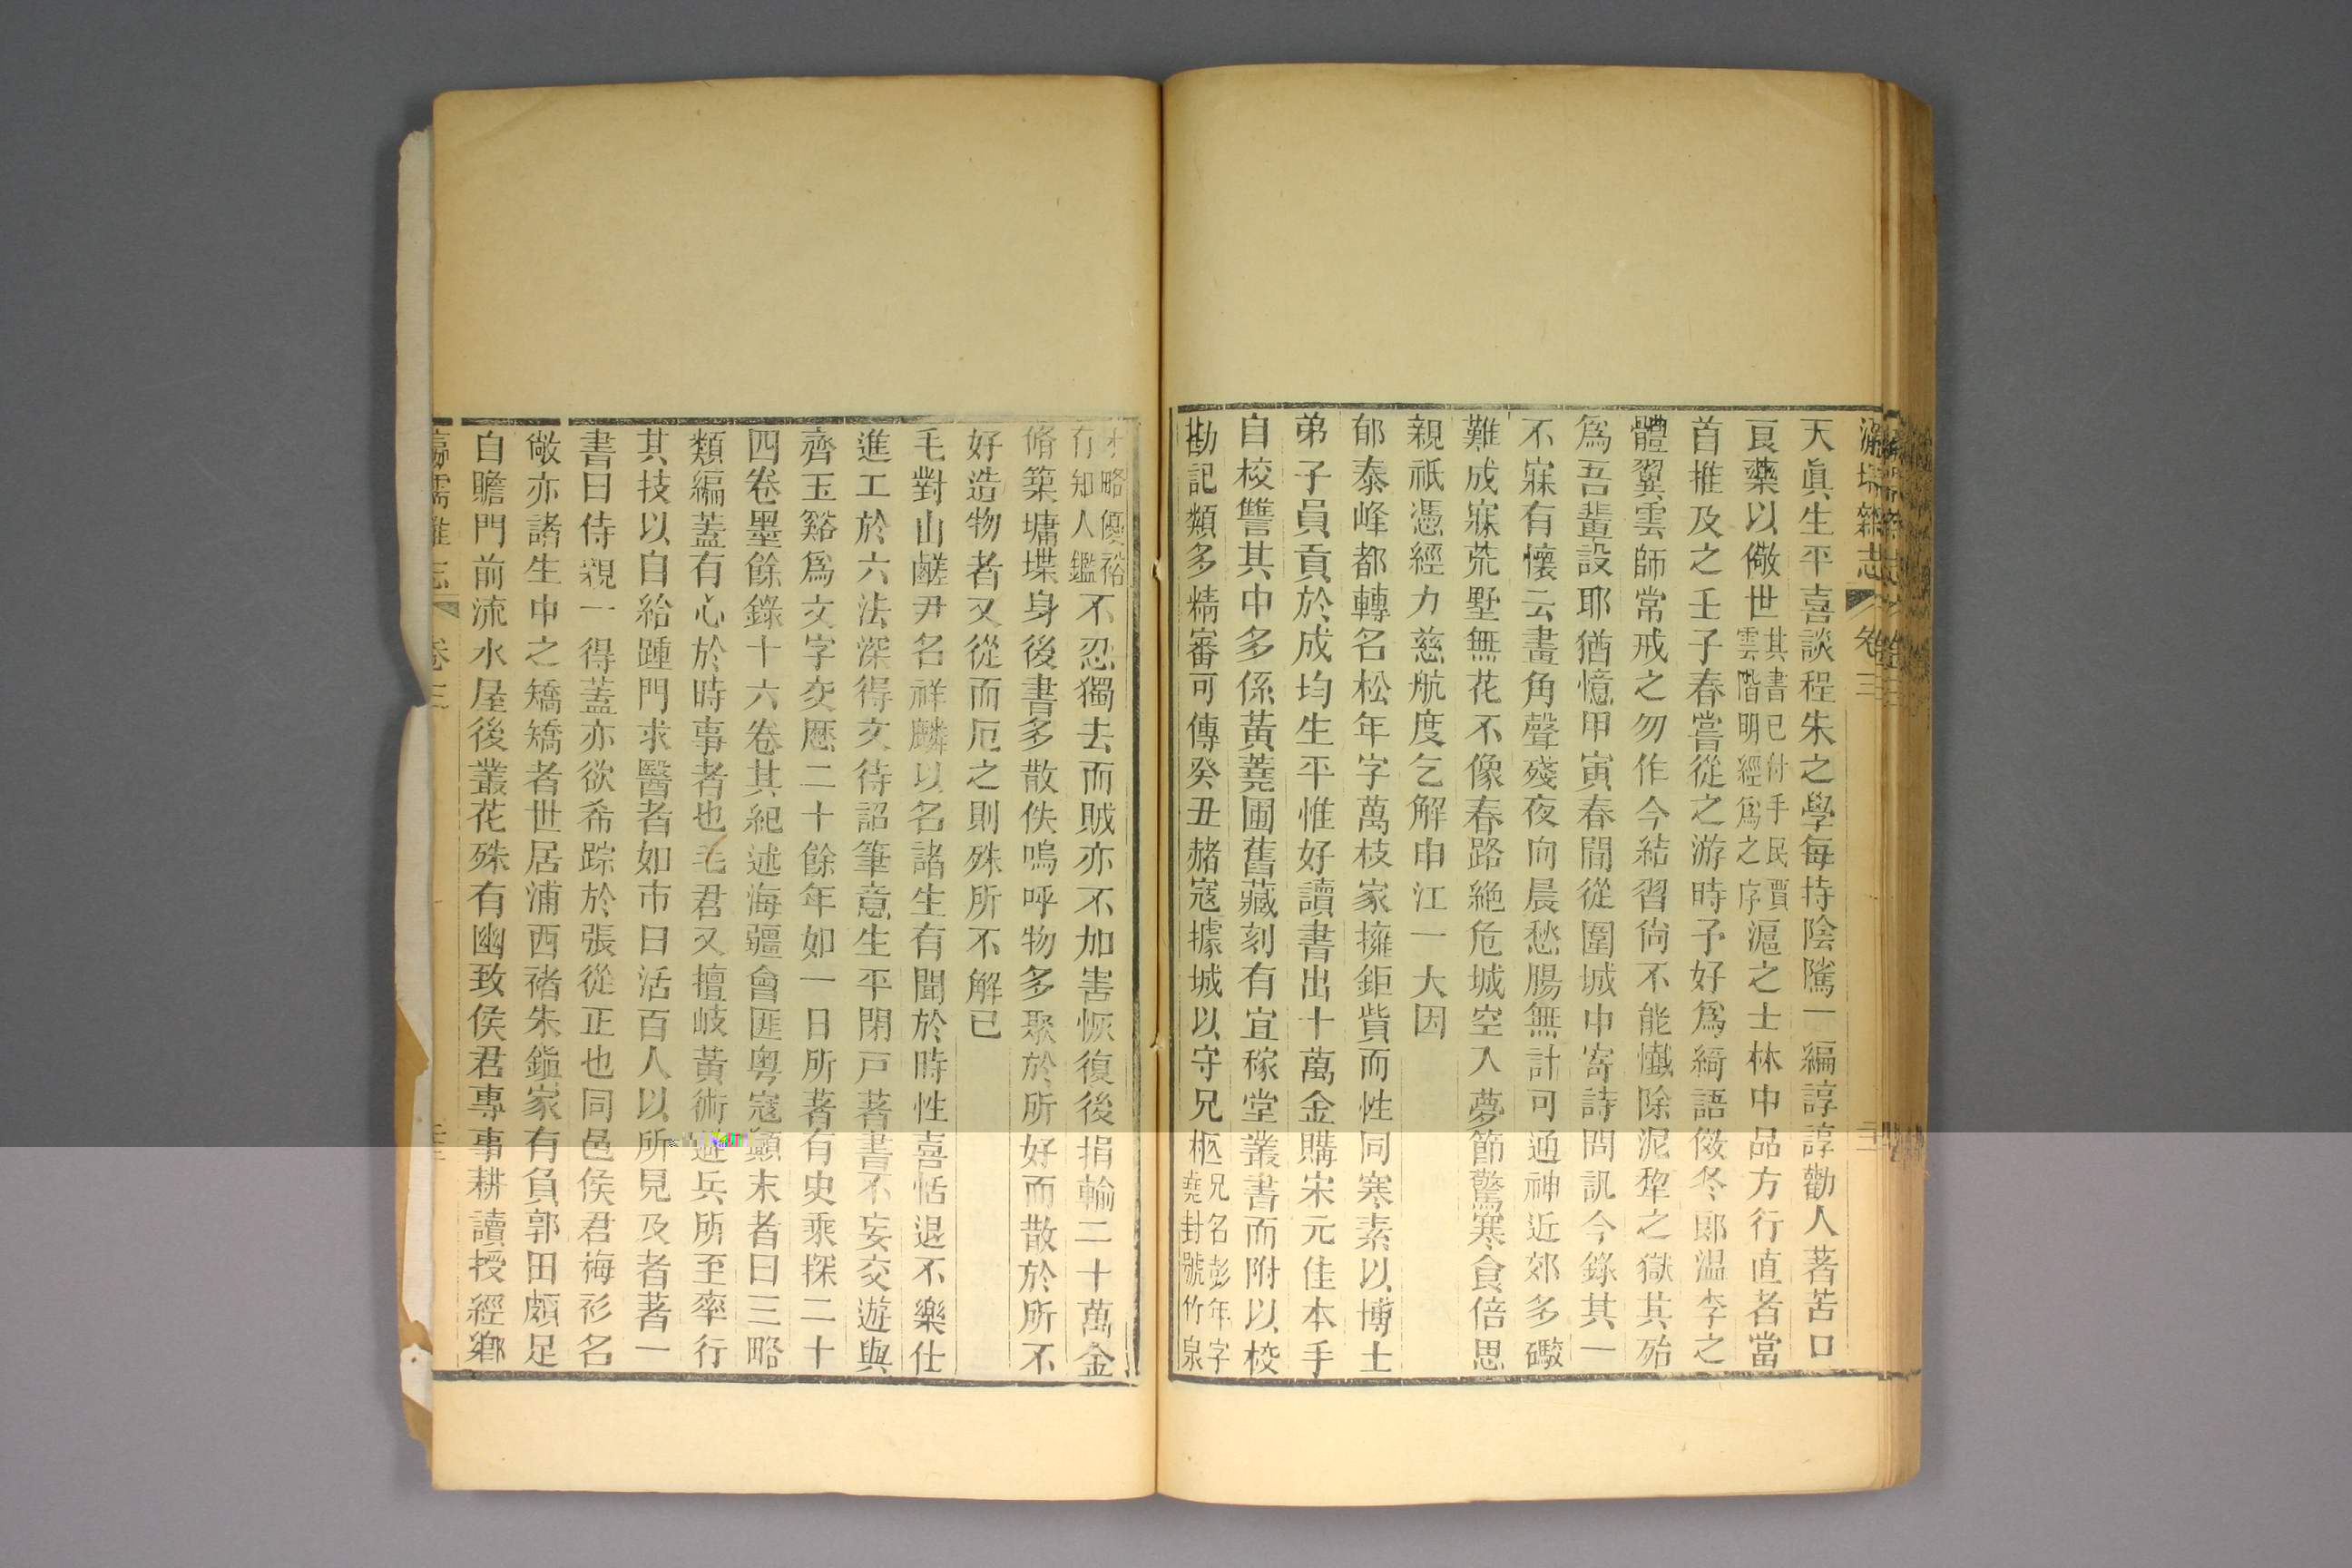 瀛壖雜志 卷三
天眞生平喜談程朱之學每持陰隲一編諄諄勸人著苦口
良藥以儆世其書已付手民賈雲階明經爲之序滬之士林中品方行直者當
首推及之壬子春嘗從之游時予好爲綺語倣冬郎温李之
體翼雲師常戒之勿作今結習尙不能懺除泥犂之獄其殆
爲吾輩設耶猶憶甲寅春間從圍城中寄詩問訊今錄其一
不寐有懷云畫角聲殘夜向晨愁腸無計可通神近郊多礮
難成寐荒墅無花不像春路絶危城空入夢節驚寒食倍思
親祇憑經力慈航度乞解申江一大因
郁泰峰都轉名松年字萬枝家擁鉅貲而性同寒素以博士
弟子員貢於成均生平惟好讀書出十萬金購宋元佳本手
自校讐其中多係黃蕘圃舊藏刻有宜稼堂叢書而附以校
勘記類多精審可傳癸丑赭寇據城以守兄柩兄名彭年字堯封號竹泉
才略優裕有知人鑑不忍獨去而賊亦不加害恢復後捐輸二十萬金
脩築墉堞身後書多散佚嗚呼物多聚於所好而散於所不
好造物者又從而厄之則殊所不解已
毛對山鹺尹名祥麟以名諸生有聞於時性喜恬退不樂仕
進工於六法深得文待詔筆意生平閉戸著書不妄交遊與
齊玉谿爲文字交歷二十餘年如一日所著有史乘探二十
四卷墨餘錄十六卷其紀述海疆會匪粵寇顚末者曰三略
類編蓋有心於時事者也毛君又擅岐黃術避兵所至率行
其技以自給踵門求醫者如市日活百人以所見及者著一
書曰侍親一得蓋亦欲希踪於張從正也同邑侯君梅衫名
敞亦諸生中之矯矯者世居浦西禇朱鎭家有負郭田頗足
自贍門前流水屋後叢花殊有幽致侯君專事耕讀授經鄉
瀛壖雜志 卷三